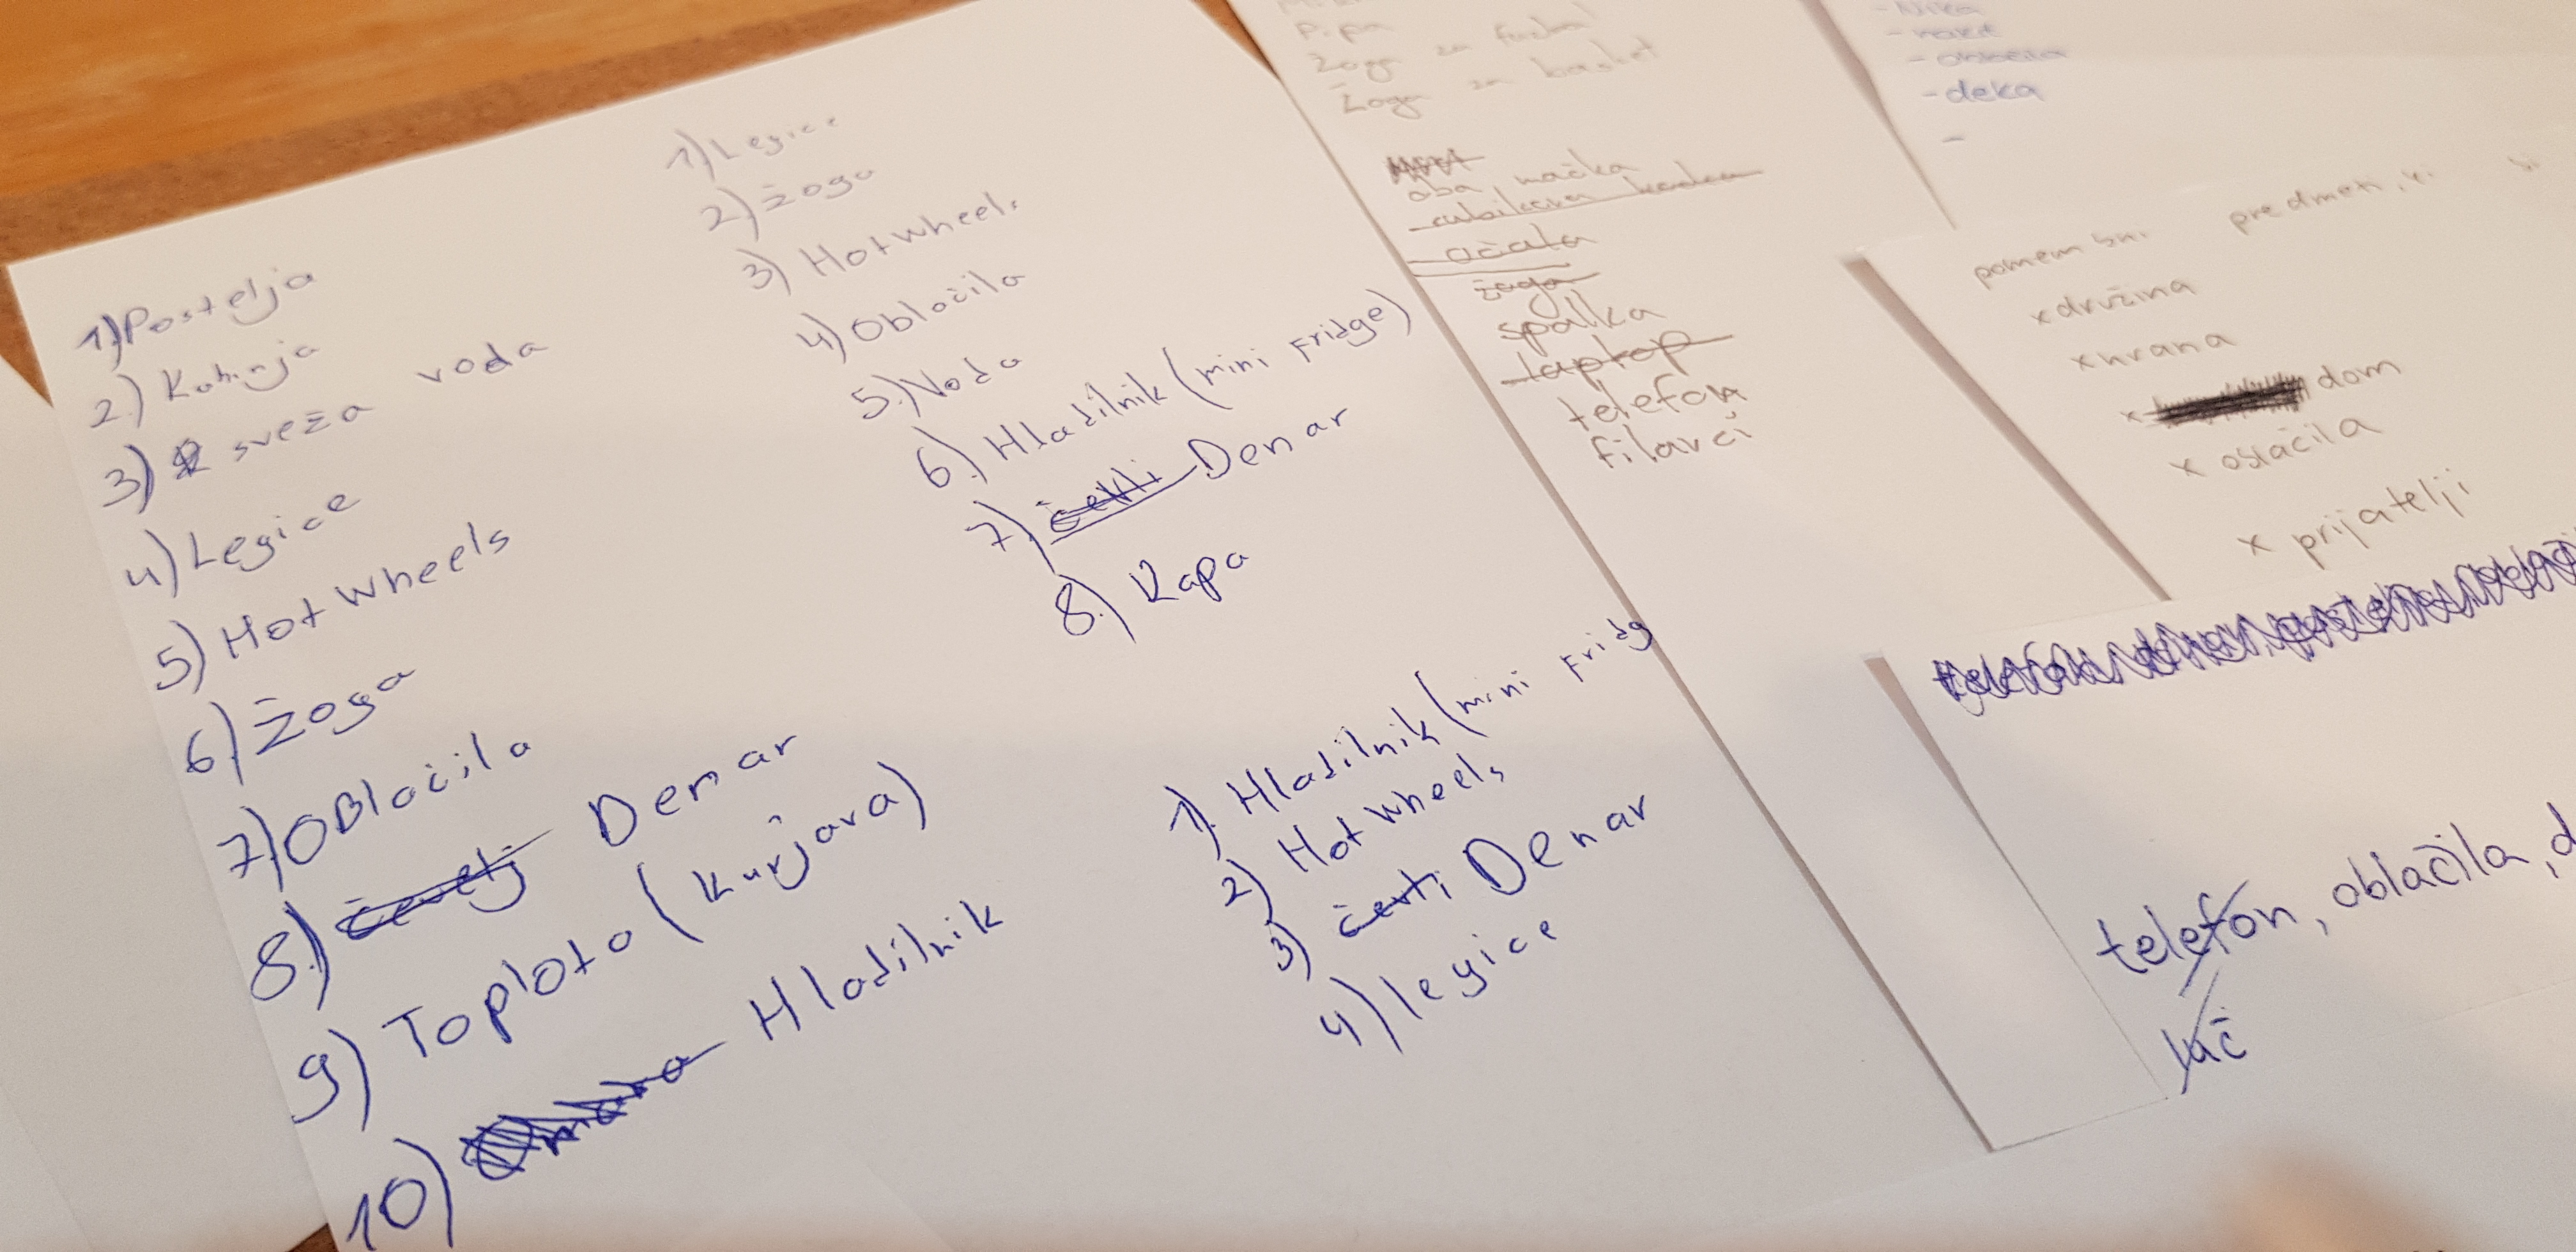 1) Postelja
2.) Kuhinja
3) sveža voda
4) Legice
5) Hot wheels
6) žoga
7) OBlačila
8.) čevelj Denar
9) Toplota (kurjava)
10) Omara Hladilnik
1) Legice
2) žoga
3) Hot wheels
4) Oblačila
5.) Voda
6.) Hladilnik (mini Fridge)
7) čevlji Denar
8.) Kapa
1) Hladilnik (mini Fridg
2) Hot wheels
3) čevlji Denar
4) legice
žoga za fuzbal
žoga za basket
oba mačka
očala
žoga
spalka
laptop
telefon
filavči
- oblačila
- deka
-
pomembni predmeti, ki
x družina
x hrana
x dom
x oblačila
x prijatelji
telefon, oblačila, d
luč